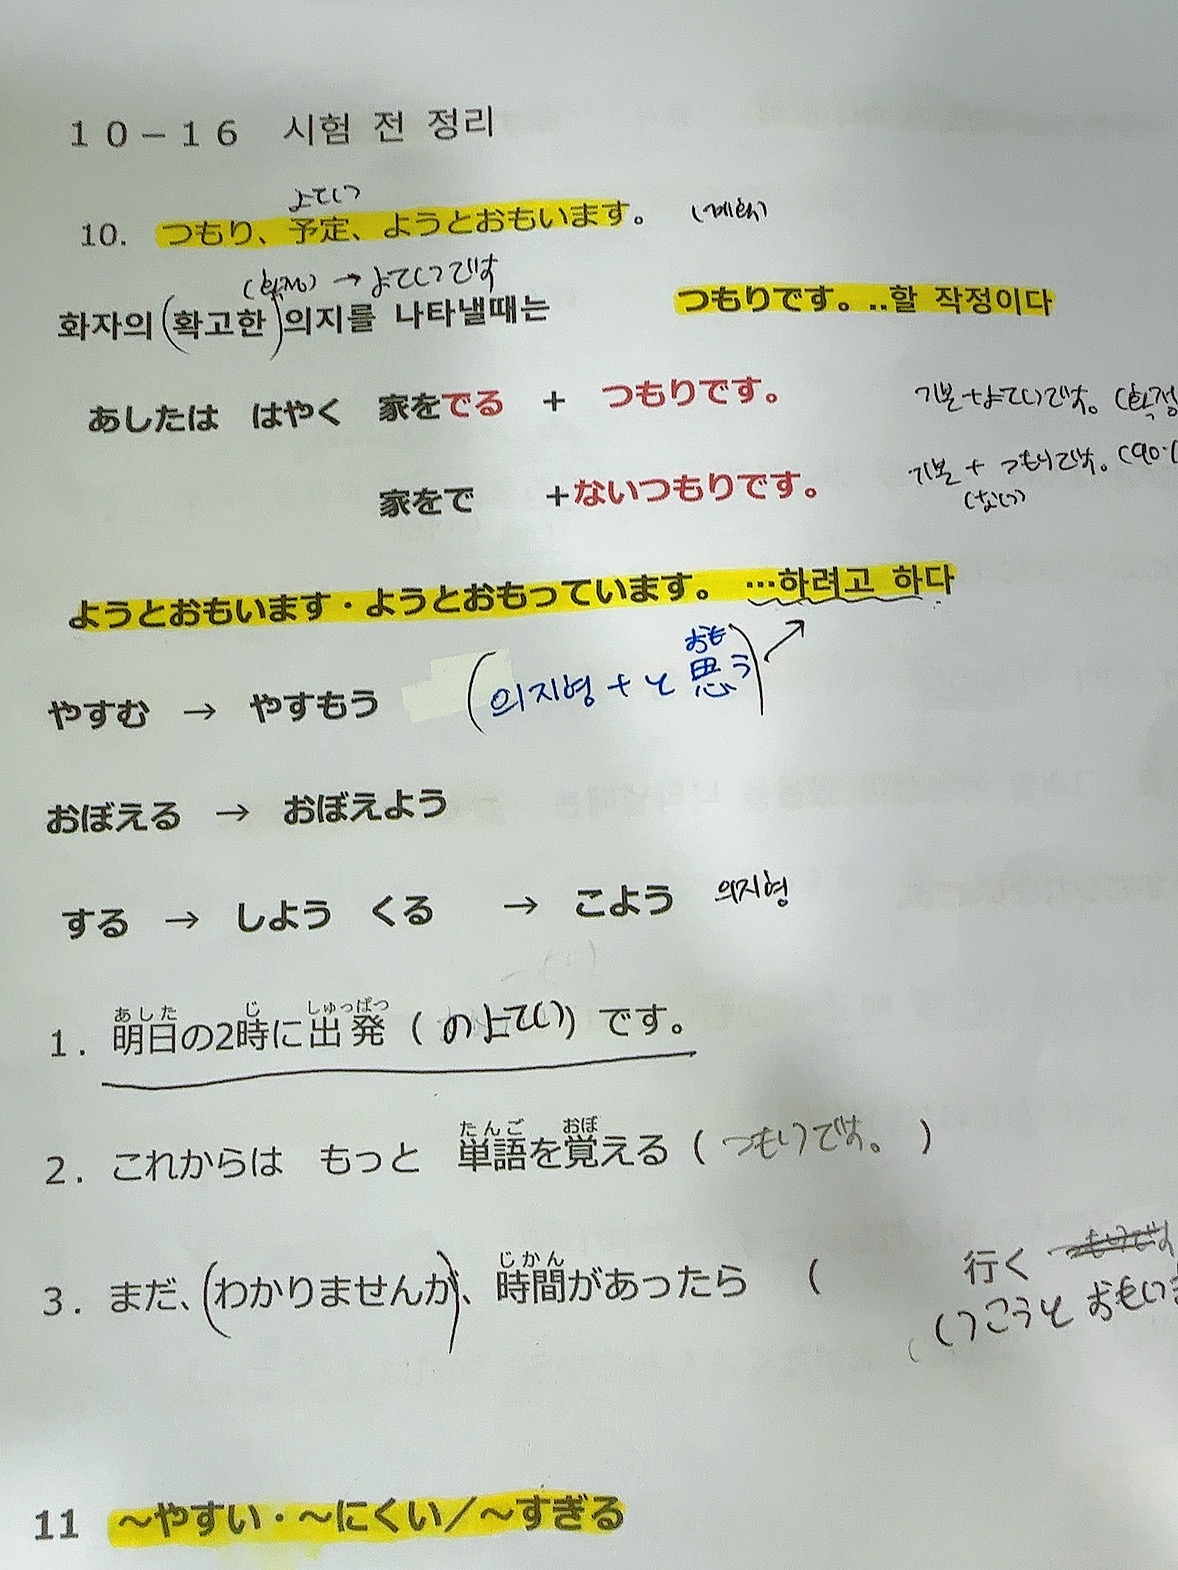 10-16 시험 전 정리
よてい
10. つもり、予定、ようとおもいます。 (계획)
→ よていです
화자의 (확고한) 의지를 나타낼때는 つもりです。..할 작정이다
あしたは はやく 家をでる + つもりです。 기본+よていです。
家をで +ないつもりです。 기본 + つもりです。
(ない)
ようとおもいます・ようとおもっています。 …하려고 하다
やすむ → やすもう (의지형 + と思う)
おも
おぼえる → おぼえよう
する → しよう くる → こよう 의지형
あした じ しゅっぱつ
1. 明日の2時に出発 ( のよてい) です。
たんご おぼ
2. これからは もっと 単語を覚える ( つもりです。 )
じかん
3. まだ、(わかりませんが)、時間があったら ( 行く つもりです
いこうと おもいま
11 ~やすい・~にくい/~すぎる